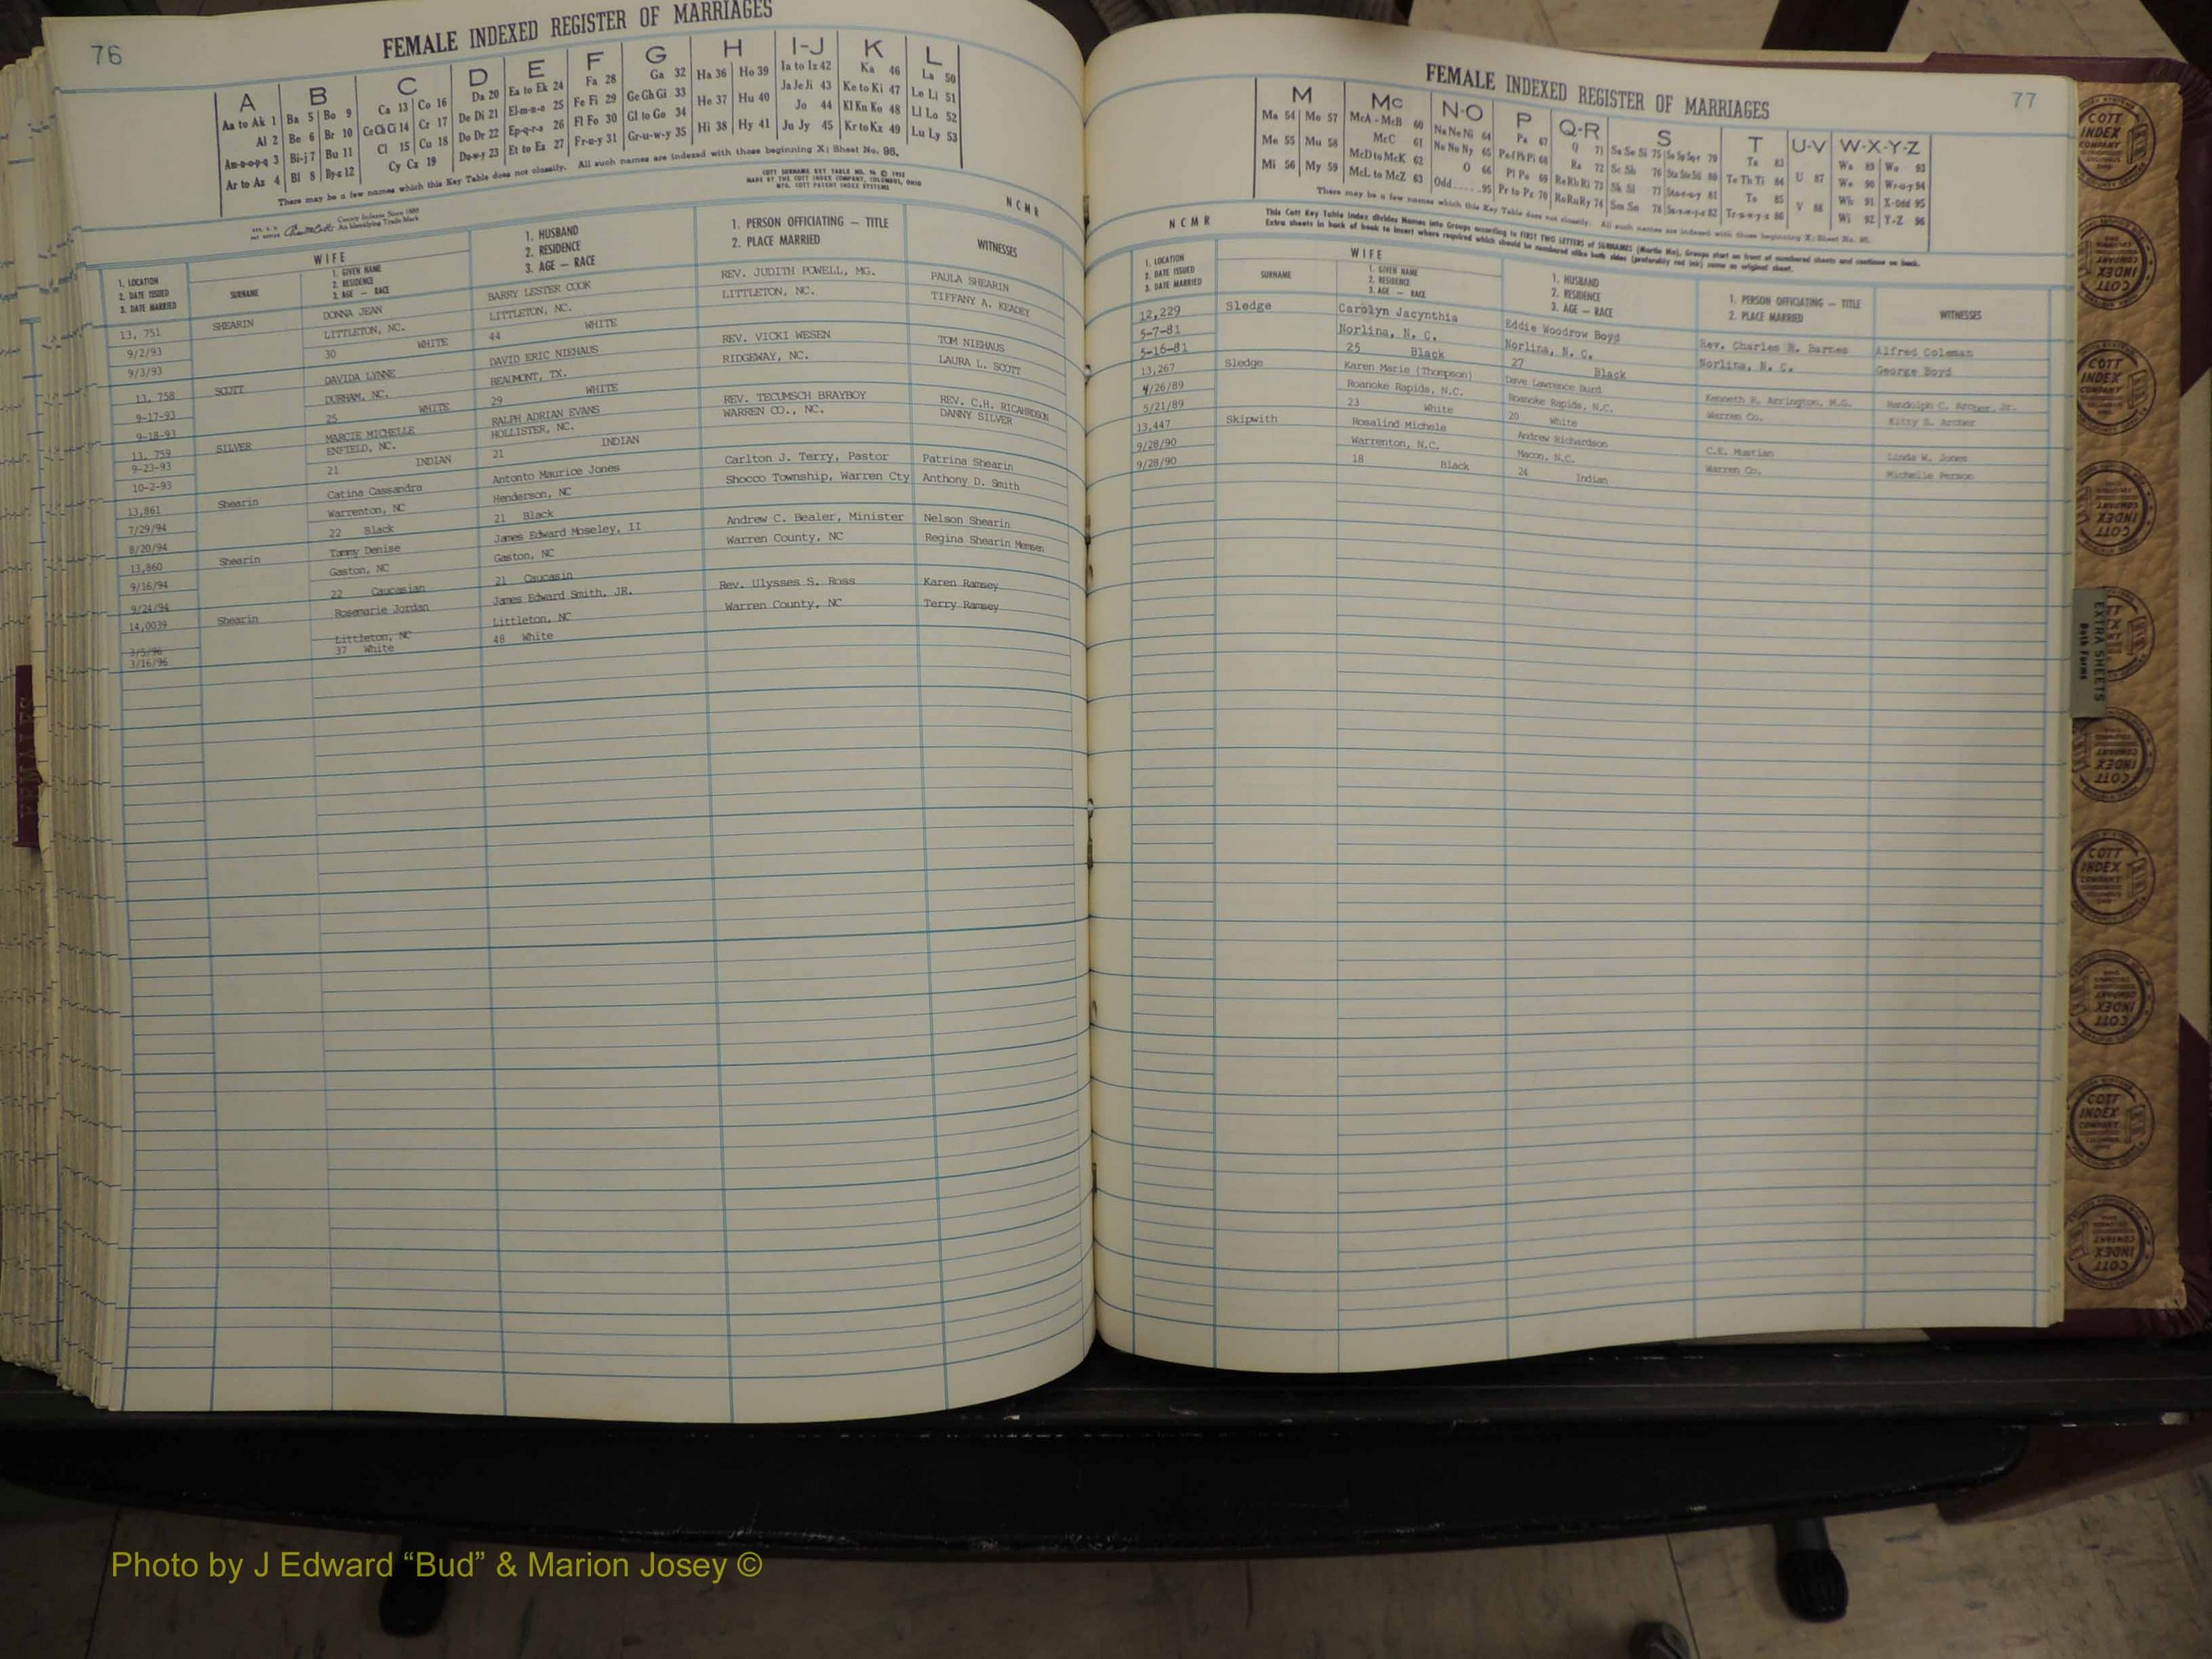 76
FEMALE INDEXED REGISTER OF MARRIAGES
A B C D E F G H I-J K L
Aa to Ak 1 Ba 5 Bo 9 Ca 13 Co 16 Da 20 Ea to Ek 24 Fa 28 Ga 32 Ha 36 Ho 39 Ia to Iz 42 Ka 46 La 50
Al 2 Be 6 Br 10 Ce Ch Ci 14 Cr 17 De Di 21 El-m-n-o 25 Fe Fi 29 Ge Gh Gi 33 He 37 Hu 40 Ja Je Ji 43 Ke to Ki 47 Le Li 51
Am-n-o-p-q 3 Bi-j 7 Bu 11 Cl 15 Cu 18 Do Dr 22 Ep-q-r-s 26 Fl Fo 30 Gl to Go 34 Hi 38 Hy 41 Jo 44 Kl Kn Ko 48 Ll Lo 52
Ar to Az 4 Bl 8 By-z 12 Cy Cz 19 Du-w-y 23 Et to Ez 27 Fr-u-y 31 Gr-u-w-y 35 Ju Jy 45 Kr to Kz 49 Lu Ly 53
There may be a few names which this Key Table does not classify. All such names are indexed with those beginning X; Sheet No. 95.
County Indexes Since 1888
An Identifying Trade Mark
COTT SURNAME KEY TABLE NO.
MADE BY THE COTT INDEX COMPANY, COLUMBUS, OHIO
MFG. COTT PATENT INDEX SYSTEMS
NCMR
1. LOCATION
2. DATE ISSUED
3. DATE MARRIED
WIFE
SURNAME
1. GIVEN NAME
2. RESIDENCE
3. AGE — RACE
1. HUSBAND
2. RESIDENCE
3. AGE — RACE
1. PERSON OFFICIATING — TITLE
2. PLACE MARRIED
WITNESSES
13, 751 SHEARIN DONNA JEAN BARRY LESTER COOK REV. JUDITH POWELL, MG. PAULA SHEARIN
9/2/93 LITTLETON, NC. LITTLETON, NC. LITTLETON, NC. TIFFANY A. KEADEY
9/3/93 30 WHITE 44 WHITE
13, 758 SCOTT DAVIDA LYNNE DAVID ERIC NIEHAUS REV. VICKI WESEN TOM NIEHAUS
9-17-93 DURHAM, NC. BEAUMONT, TX. RIDGEWAY, NC. LAURA L. SCOTT
9-18-93 25 WHITE 29 WHITE
13, 759 SILVER MARCIE MICHELLE RALPH ADRIAN EVANS REV. TECUMSCH BRAYBOY REV. C.H. RICAHRDSON
9-23-93 ENFIELD, NC. HOLLISTER, NC. WARREN CO., NC. DANNY SILVER
10-2-93 21 INDIAN 21 INDIAN
13,861 Shearin Catina Cassandra Antonto Maurice Jones Carlton J. Terry, Pastor Patrina Shearin
7/29/94 Warrenton, NC Henderson, NC Shocco Township, Warren Cty Anthony D. Smith
8/20/94 22 Black 21 Black
13,860 Shearin Tammy Denise James Edward Moseley, II Andrew C. Bealer, Minister Nelson Shearin
9/16/94 Gaston, NC Gaston, NC Warren County, NC Regina Shearin
9/24/94 22 Caucasian 21 Caucasin
14,0039 Shearin Rosemarie Jordan James Edward Smith, JR. Rev. Ulysses S. Ross Karen Ramsey
3/5/96 Littleton, NC Littleton, NC Warren County, NC Terry Ramsey
3/16/96 37 White 48 White
77
FEMALE INDEXED REGISTER OF MARRIAGES
M Mc N-O P Q-R S T U-V W-X-Y-Z
Ma 54 Mo 57 McA - McB 60 Na Ne Ni 64 Pa 67 Q 71 Sa Se Si 75 79 Ta 83 U 87 Wa 89 Wo 93
Me 55 Mu 58 McC 61 No Nu Ny 65 Pe Pf Ph Pi 68 Ra 72 Sc Sh 76 80 Te Th Ti 84 V 88 We 90 Wr-u-y 94
Mi 56 My 59 McD to McK 62 O 66 Pl Po 69 Re Rh Ri 73 Sk Sl 77 81 To 85 Wh 91 X-Odd 95
McL to McZ 63 Odd 95 Pr to Pz 70 Ro Ru Ry 74 Sm Sn 78 82 Tr-u-w-y-z 86 Wi 92 Y-Z 96
There may be a few names which this Key Table does not classify. All such names are indexed with those beginning X; Sheet No. 95.
NCMR
This Cott Key Table Index divides Names into Groups according to FIRST TWO LETTERS of SURNAMES (Martin Ma), Groups start on front of numbered sheets and continue on back.
Extra sheets in back of book to insert where required which should be numbered alike both sides (preferably red ink) same as original sheet.
1. LOCATION
2. DATE ISSUED
3. DATE MARRIED
WIFE
SURNAME
1. GIVEN NAME
2. RESIDENCE
3. AGE — RACE
1. HUSBAND
2. RESIDENCE
3. AGE — RACE
1. PERSON OFFICIATING — TITLE
2. PLACE MARRIED
WITNESSES
12,229 Sledge Carolyn Jacynthia Eddie Woodrow Boyd Rev. Charles R. Barnes Alfred Coleman
5-7-81 Norlina, N. C. Norlina, N. C. Norlina, N. C. George Boyd
5-16-81 25 Black 27 Black
13,267 Sledge Karen Marie (Thompson) Dave Lawrence Burd Kenneth R. Arrington, M.G. Randolph C. Archer, Jr.
4/26/89 Roanoke Rapids, N.C. Roanoke Rapids, N.C. Warren Co. Kitty S. Archer
5/21/89 23 White 20 White
13,447 Skipwith Rosalind Michele Andrew Richardson C.E. Mustian Linda W. Jones
9/28/90 Warrenton, N.C. Macon, N.C. Warren Co. Michelle Person
9/28/90 18 Black 24 Indian
EXTRA SHEETS
Both Forms
COTT INDEX COMPANY
Photo by J Edward “Bud” & Marion Josey ©